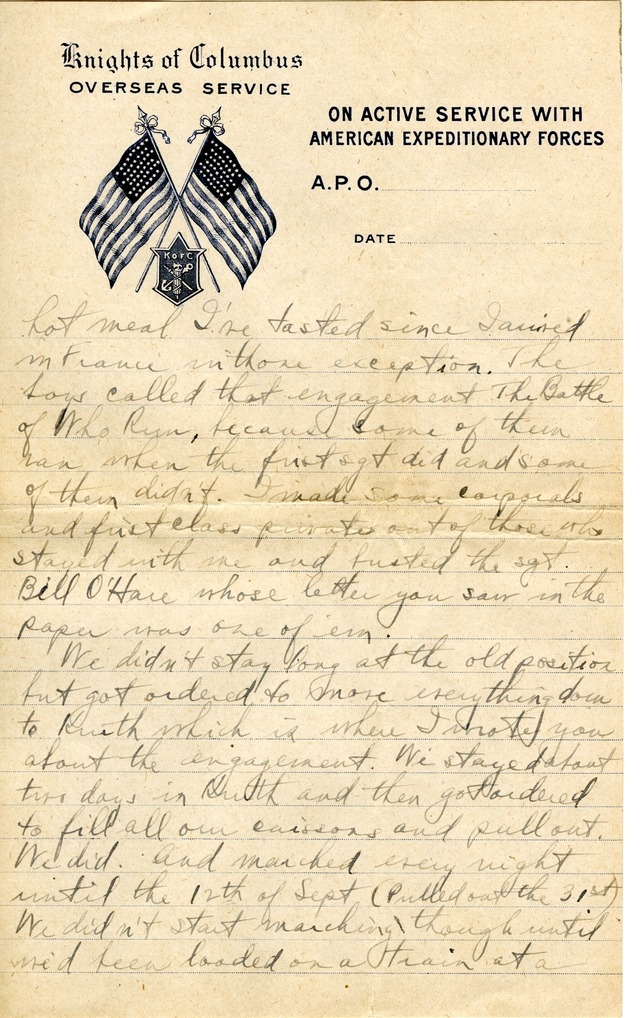 Knights of Columbus
OVERSEAS SERVICE
ON ACTIVE SERVICE WITH
AMERICAN EXPEDITIONARY FORCES
A.P.O.
DATE
K of C
hot meal I've tasted since I arrived
in France with one exception. The
boys called that engagement The Battle
of Who Run, because some of them
ran when the first sgt did and some
of them didn't. I made some corporals
and first class privates out of those who
stayed with me and busted the sgt.
Bill O'Hare whose letter you saw in the
paper was one of 'em.
We didn't stay long at the old position
but got ordered to move everything down
to Kruth which is where I wrote you
about the engagement. We stayed about
two days in Kruth and then got ordered
to fill all our caissons and pull out.
We did. And marched every night
until the 12th of Sept (Pulled out the 31st)
We didn't start marching though until
we'd been loaded on a train at a